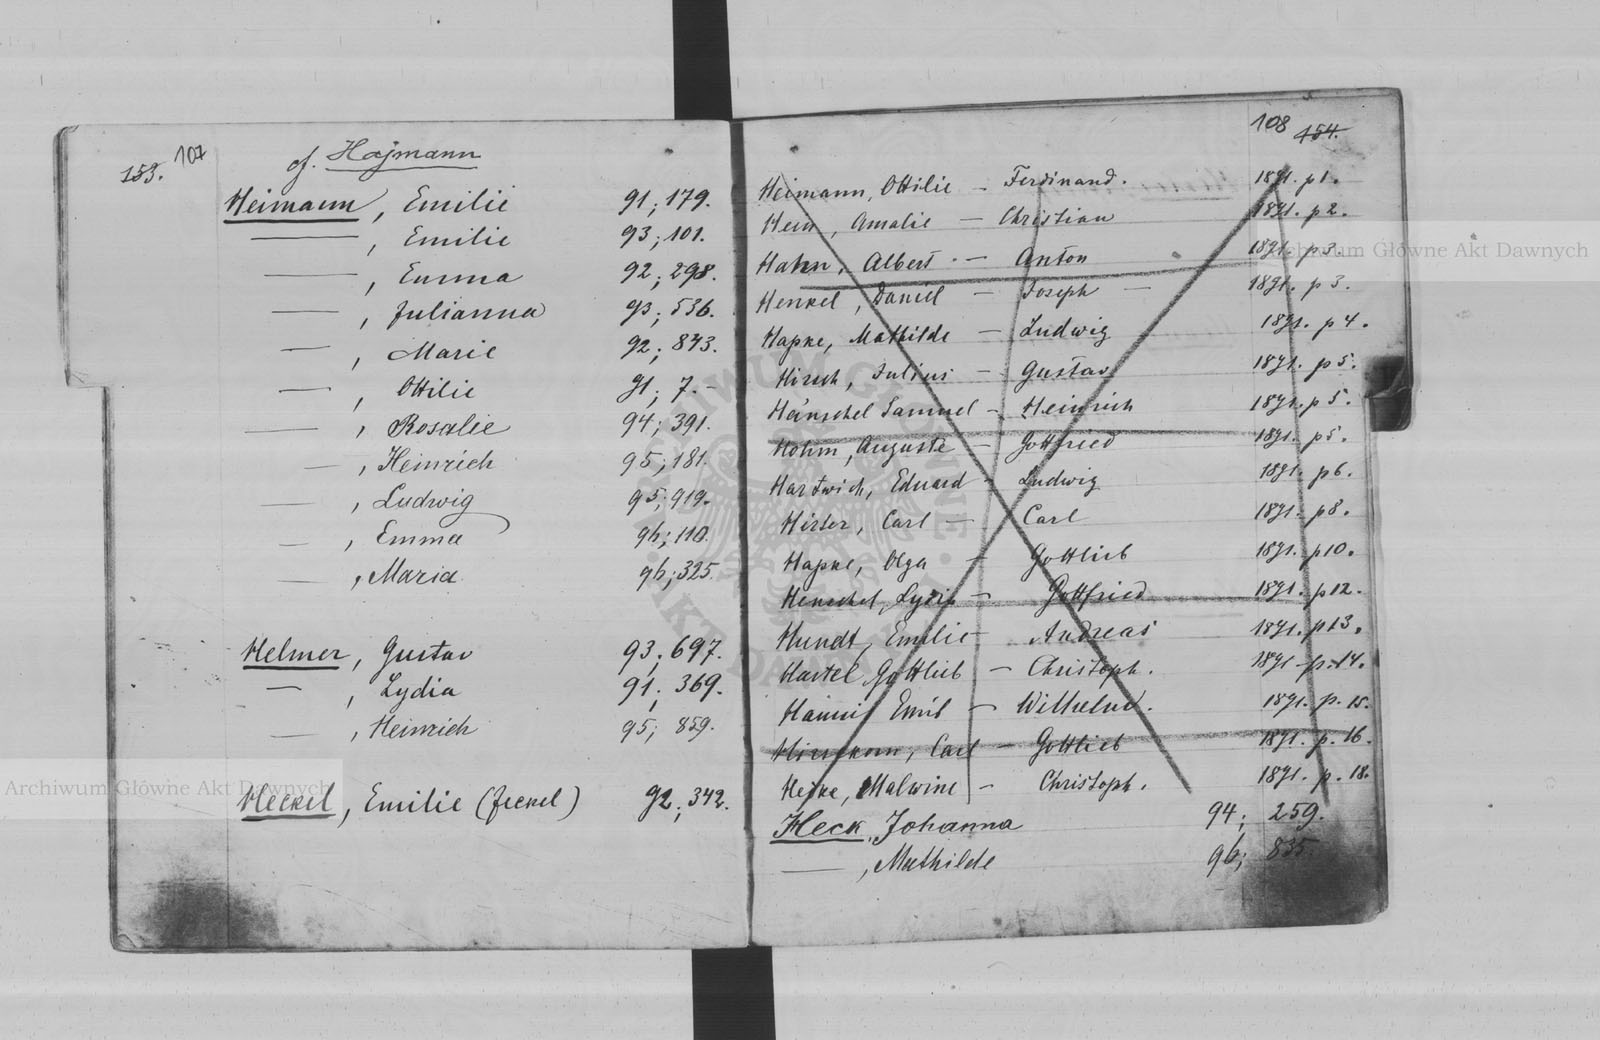 153. 107
cf. Hajmann
Heimann, Emilie 91; 179.
—, Emilie 93; 101.
—, Emma 92; 298.
—, Julianna 93; 536.
—, Marie 92; 843.
—, Ottilie 91; 7.-
—, Rosalie 94; 391.
—, Heinrich 95; 181.
—, Ludwig 95; 919.
—, Emma 96; 110.
—, Maria 96; 325.
Helmer, Gustav 93; 697.
—, Lydia 91; 369.
—, Heinrich 95; 859.
Heckel, Emilie (Jeckel) 92; 342.
108 154.
Heimann, Ottilie — Ferdinand. 1891. p 1.
Hein, Amalie — Christian 1891. p 2.
Hahn, Albert — Anton 1891. p 3.
Henkel, Daniel — Joseph — 1891. p 3.
Hapke, Mathilde — Ludwig 1891. p 4.
Hirsch, Julius — Gustav 1891. p 5.
Hänschel Samuel — Heinrich 1891. p 5.
Hohm, Auguste — Gottfried 1891. p 5.
Hartwich, Eduard — Ludwig 1891. p 6.
Carl — Carl 1891. p 8.
Hapke, Olga — Gottlieb 1891. p 10.
Henschel, Lydia — Gottfried 1891. p 12.
Hundt, Emilie — Andreas 1891. p 13.
Hartel Gottlieb — Christoph. 1891 p. 14.
Emil — Wilhelm. 1891. p. 15.
Carl — Gottlieb 1891. p. 16.
Malwine — Christoph. 1891. p. 18.
Heck, Johanna 94; 259.
—, Mathilde 96; 835.
Archiwum Główne Akt Dawnych
Archiwum Główne Akt Dawnych
ARCHIWUM GŁÓWNE AKT DAWNYCH